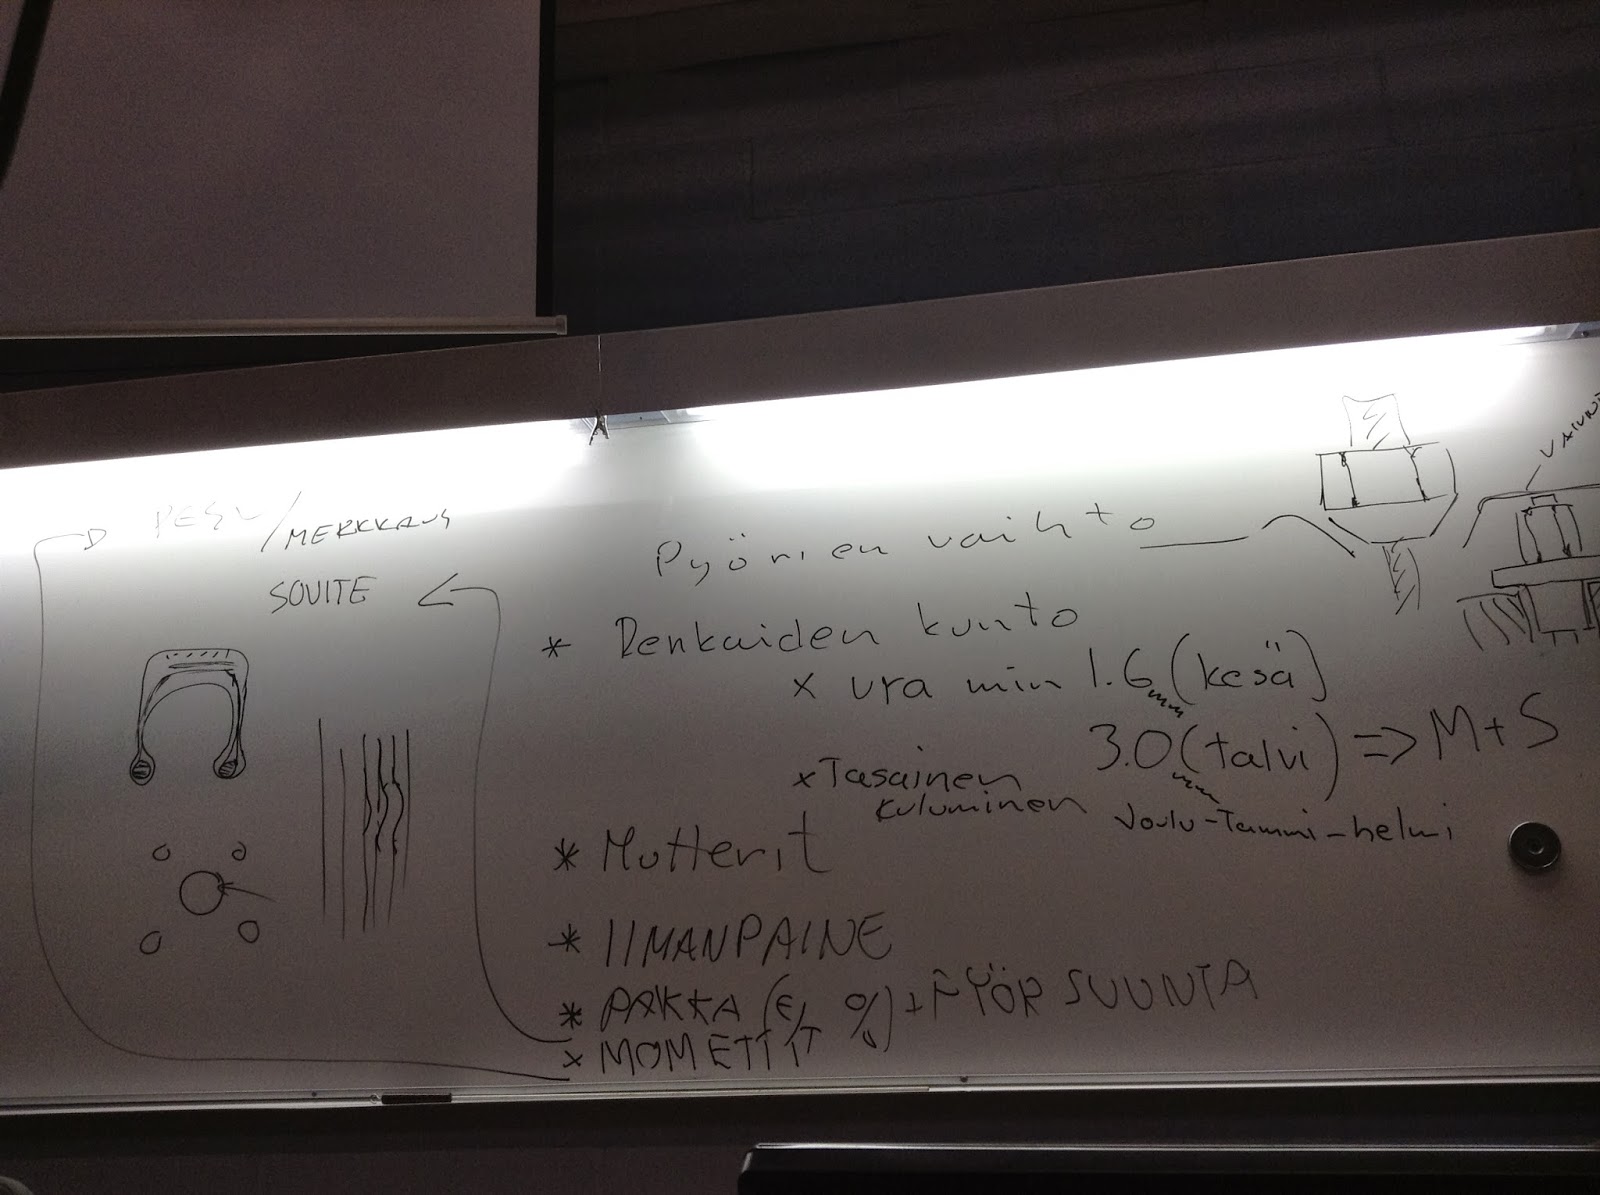 PESU / MERKKAUS
SOVITE
Pyörien vaihto
* Renkaiden kunto
x ura min 1.6 mm (kesä)
3.0 mm (talvi) => M+S
x Tasainen
kuluminen
Joulu-Tammi-helmi
* Mutterit
* IlMANPAINE
* PAKKA (E/T %) + PYÖR SUUNTA
x MOMETTIT